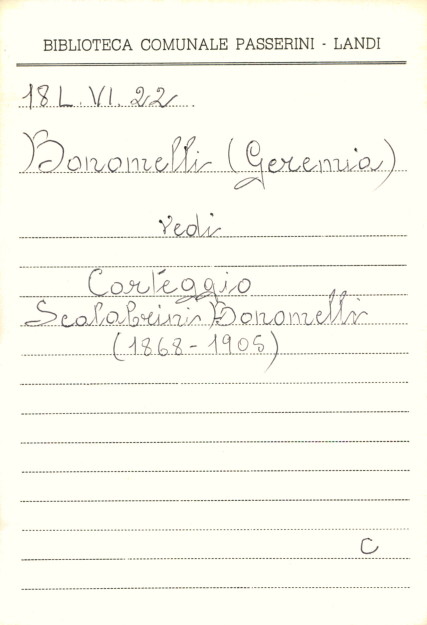 BIBLIOTECA COMUNALE PASSERINI - LANDI
18 L. VI. 22
Bonomelli (Geremia)
vedi
Carteggio
Scalabrini Bonomelli
(1868-1905)
C